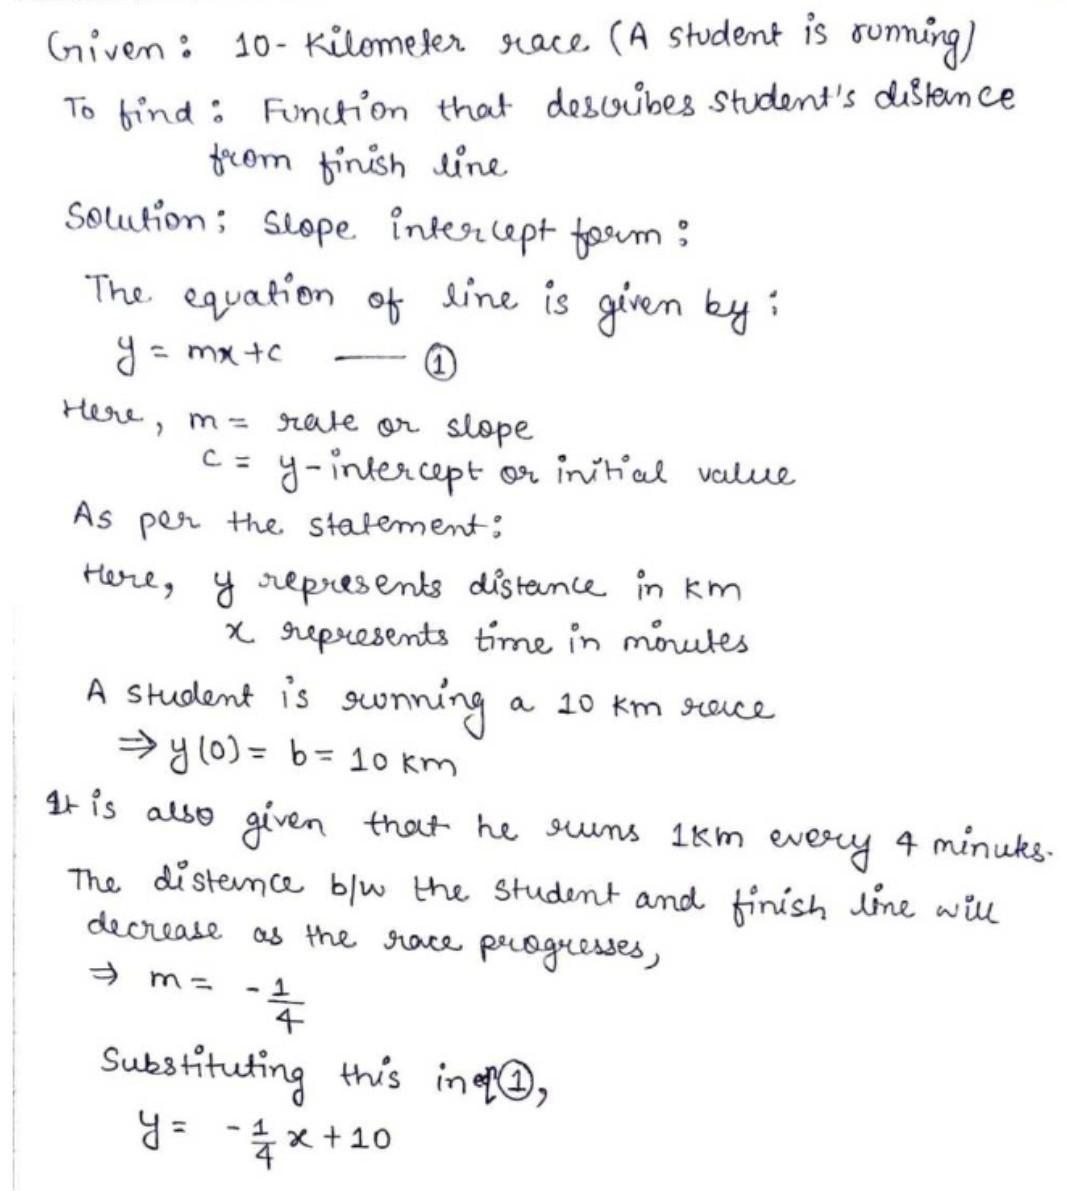 Given : 10-Kilometer race (A student is running)
To find : Function that describes student's distance
from finish line
Solution : Slope intercept form :
The equation of line is given by :
y = mx + c — ①
Here, m = rate or slope
c = y-intercept or initial value
As per the statement :
Here, y represents distance in km
x represents time in minutes
A student is running a 10 km race
⇒ y(0) = b = 10 km
It is also given that he runs 1km every 4 minutes.
The distance b/w the student and finish line will
decrease as the race progresses,
⇒ m = -1/4
Substituting this in eq ①,
y = -1/4 x + 10